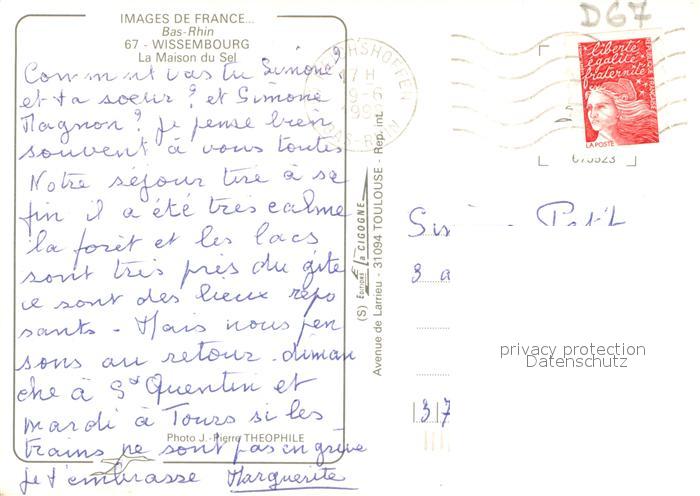 IMAGES DE FRANCE...
Bas-Rhin
67 - WISSEMBOURG
La Maison du Sel
Comment vas tu Simone ?
et ta soeur ? et Simone
Magnon ? Je pense bien
souvent à vous toutes
Notre séjour tire à sa
fin il a été très calme
la forêt et les lacs
sont très près du gîte
ce sont des lieux repo
sants - Mais nous pen
sons au retour. diman
che à St Quentin et
mardi à Tours si les
trains ne sont pas en grève
Photo J.-Pierre THEOPHILE
Je t'embrasse Marguerite
(S) EDITIONS La CIGOGNE
Avenue de Larrieu - 31094 TOULOUSE - Rep. int.
17 H
D67
liberté
égalité
fraternité
LA POSTE
3 a
37
privacy protection
Datenschutz